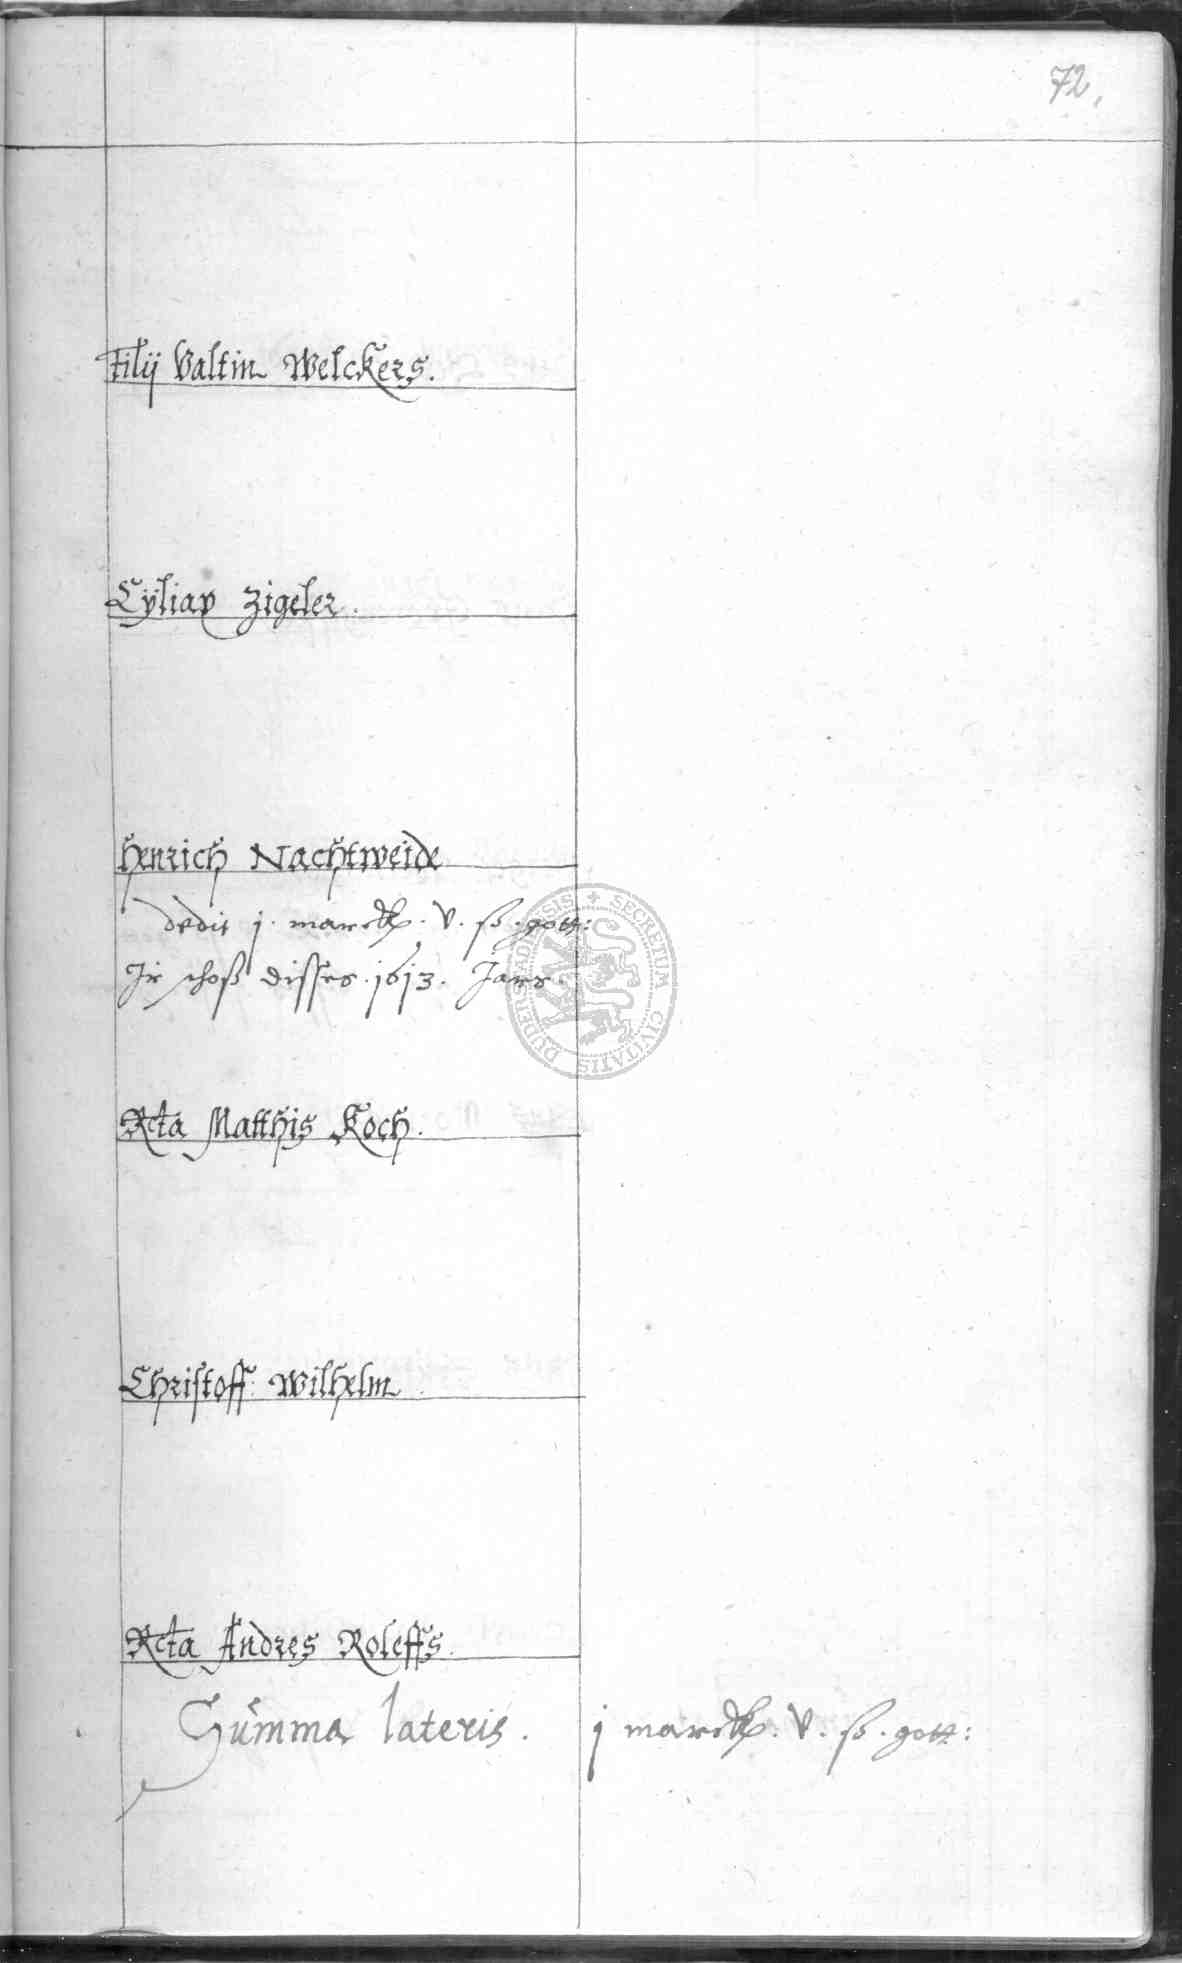 72.
Filij Valtin Welckers.
Cÿliax Zigeler.
Henrich Nachtweide
dedit j. marck. v. ß. gott:
Ir schoß disses .1613. Jars.
Rcta Matthis Koch.
Christoff Wilhelm
Rcta Andres Roleffs.
Summa lateris. j marck. v. ß. gott:
SECRETUM CIVITATIS DUDERSTADIENSIS